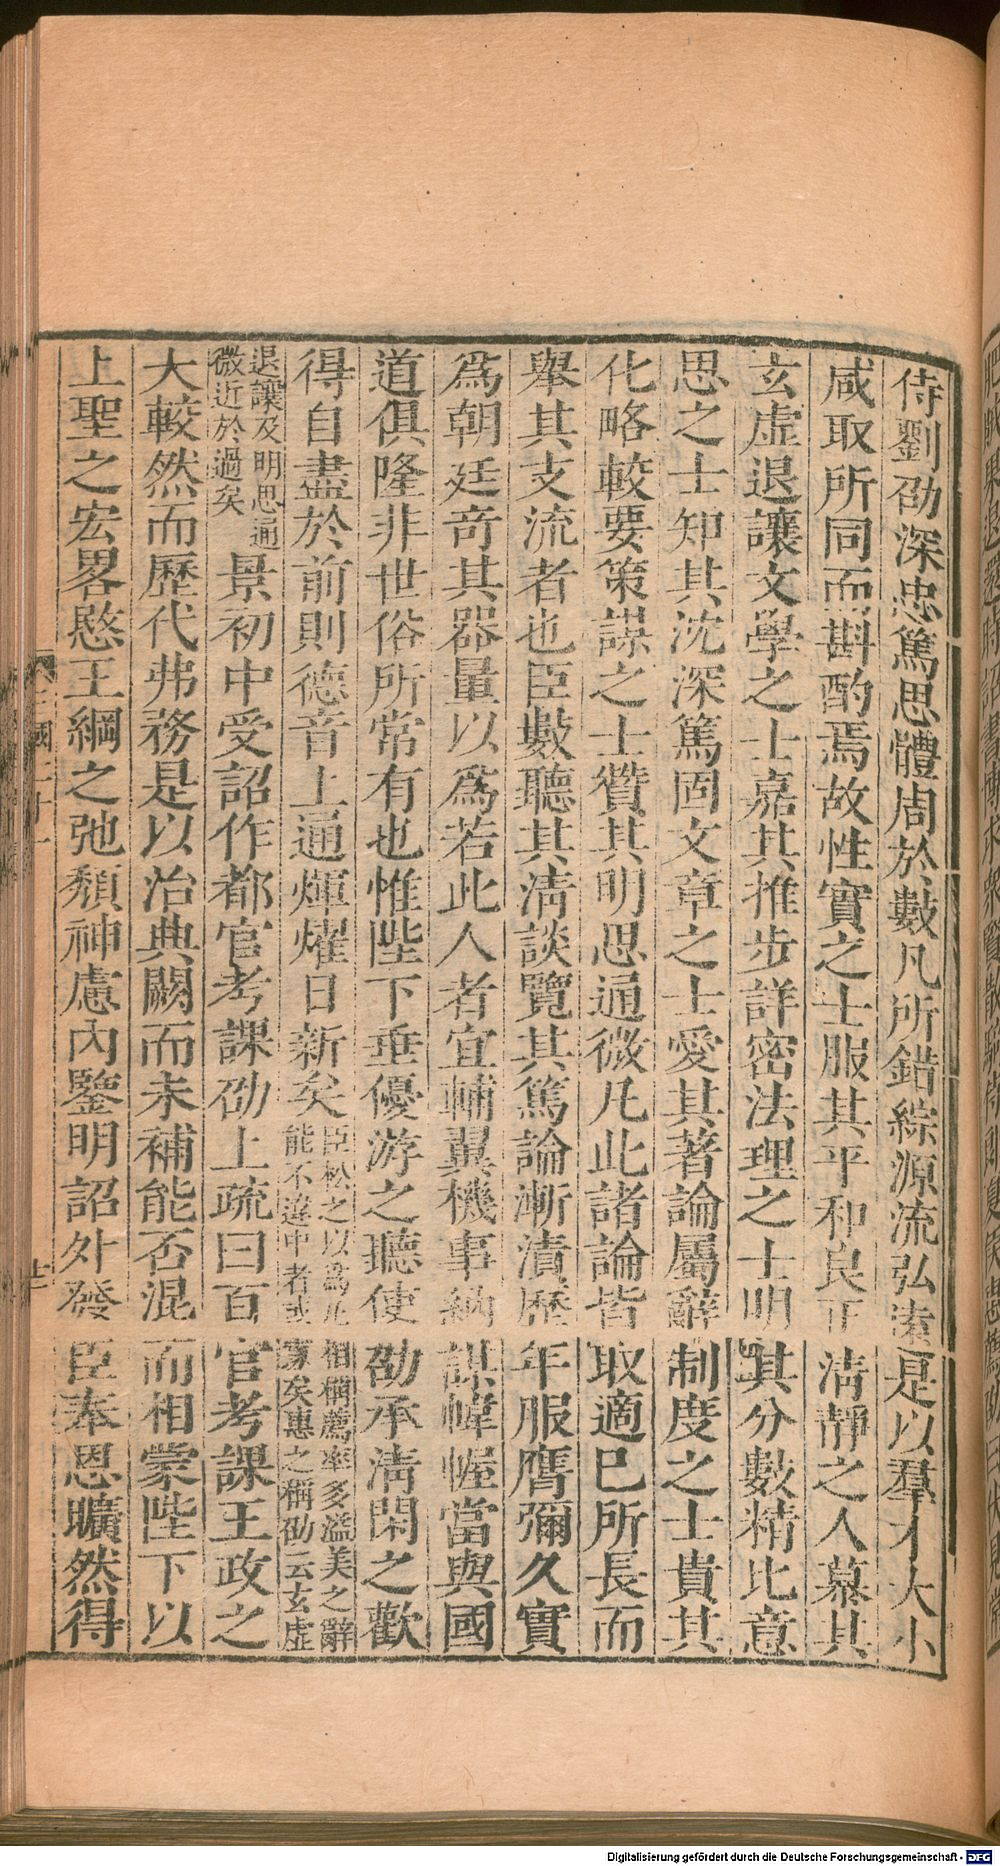 侍劉劭深忠篤思體周於數凡所錯綜源流弘遠是以羣才大小
咸取所同而斟酌焉故性實之士服其平和良正淸靜之人慕其
玄虛退讓文學之士嘉其推步詳密法理之士明其分數精比意
思之士知其沈深篤固文章之士愛其著論屬辭制度之士貴其
化略較要策謀之士贊其明思通微凡此諸論皆取適已所長而
舉其支流者也臣數聽其淸談覽其篤論漸漬歷年服膺彌久實
爲朝廷奇其器量以爲若此人者宜輔翼機事納謀幃幄當與國
道俱隆非世俗所常有也惟陛下垂優游之聽使劭承淸閑之歡
得自盡於前則德音上通煇燿日新矣臣松之以爲凡相稱薦率多溢美之辭能不違中者或寡矣惠之稱劭云玄虛
退讓及明思通微近於過矣景初中受詔作都官考課劭上疏曰百官考課王政之
大較然而歷代弗務是以治典闕而未補能否混而相蒙陛下以
上聖之宏畧愍王綱之弛頹神慮內鑒明詔外發臣奉恩曠然得
三國二十一
Digitalisierung gefördert durch die Deutsche Forschungsgemeinschaft - DFG